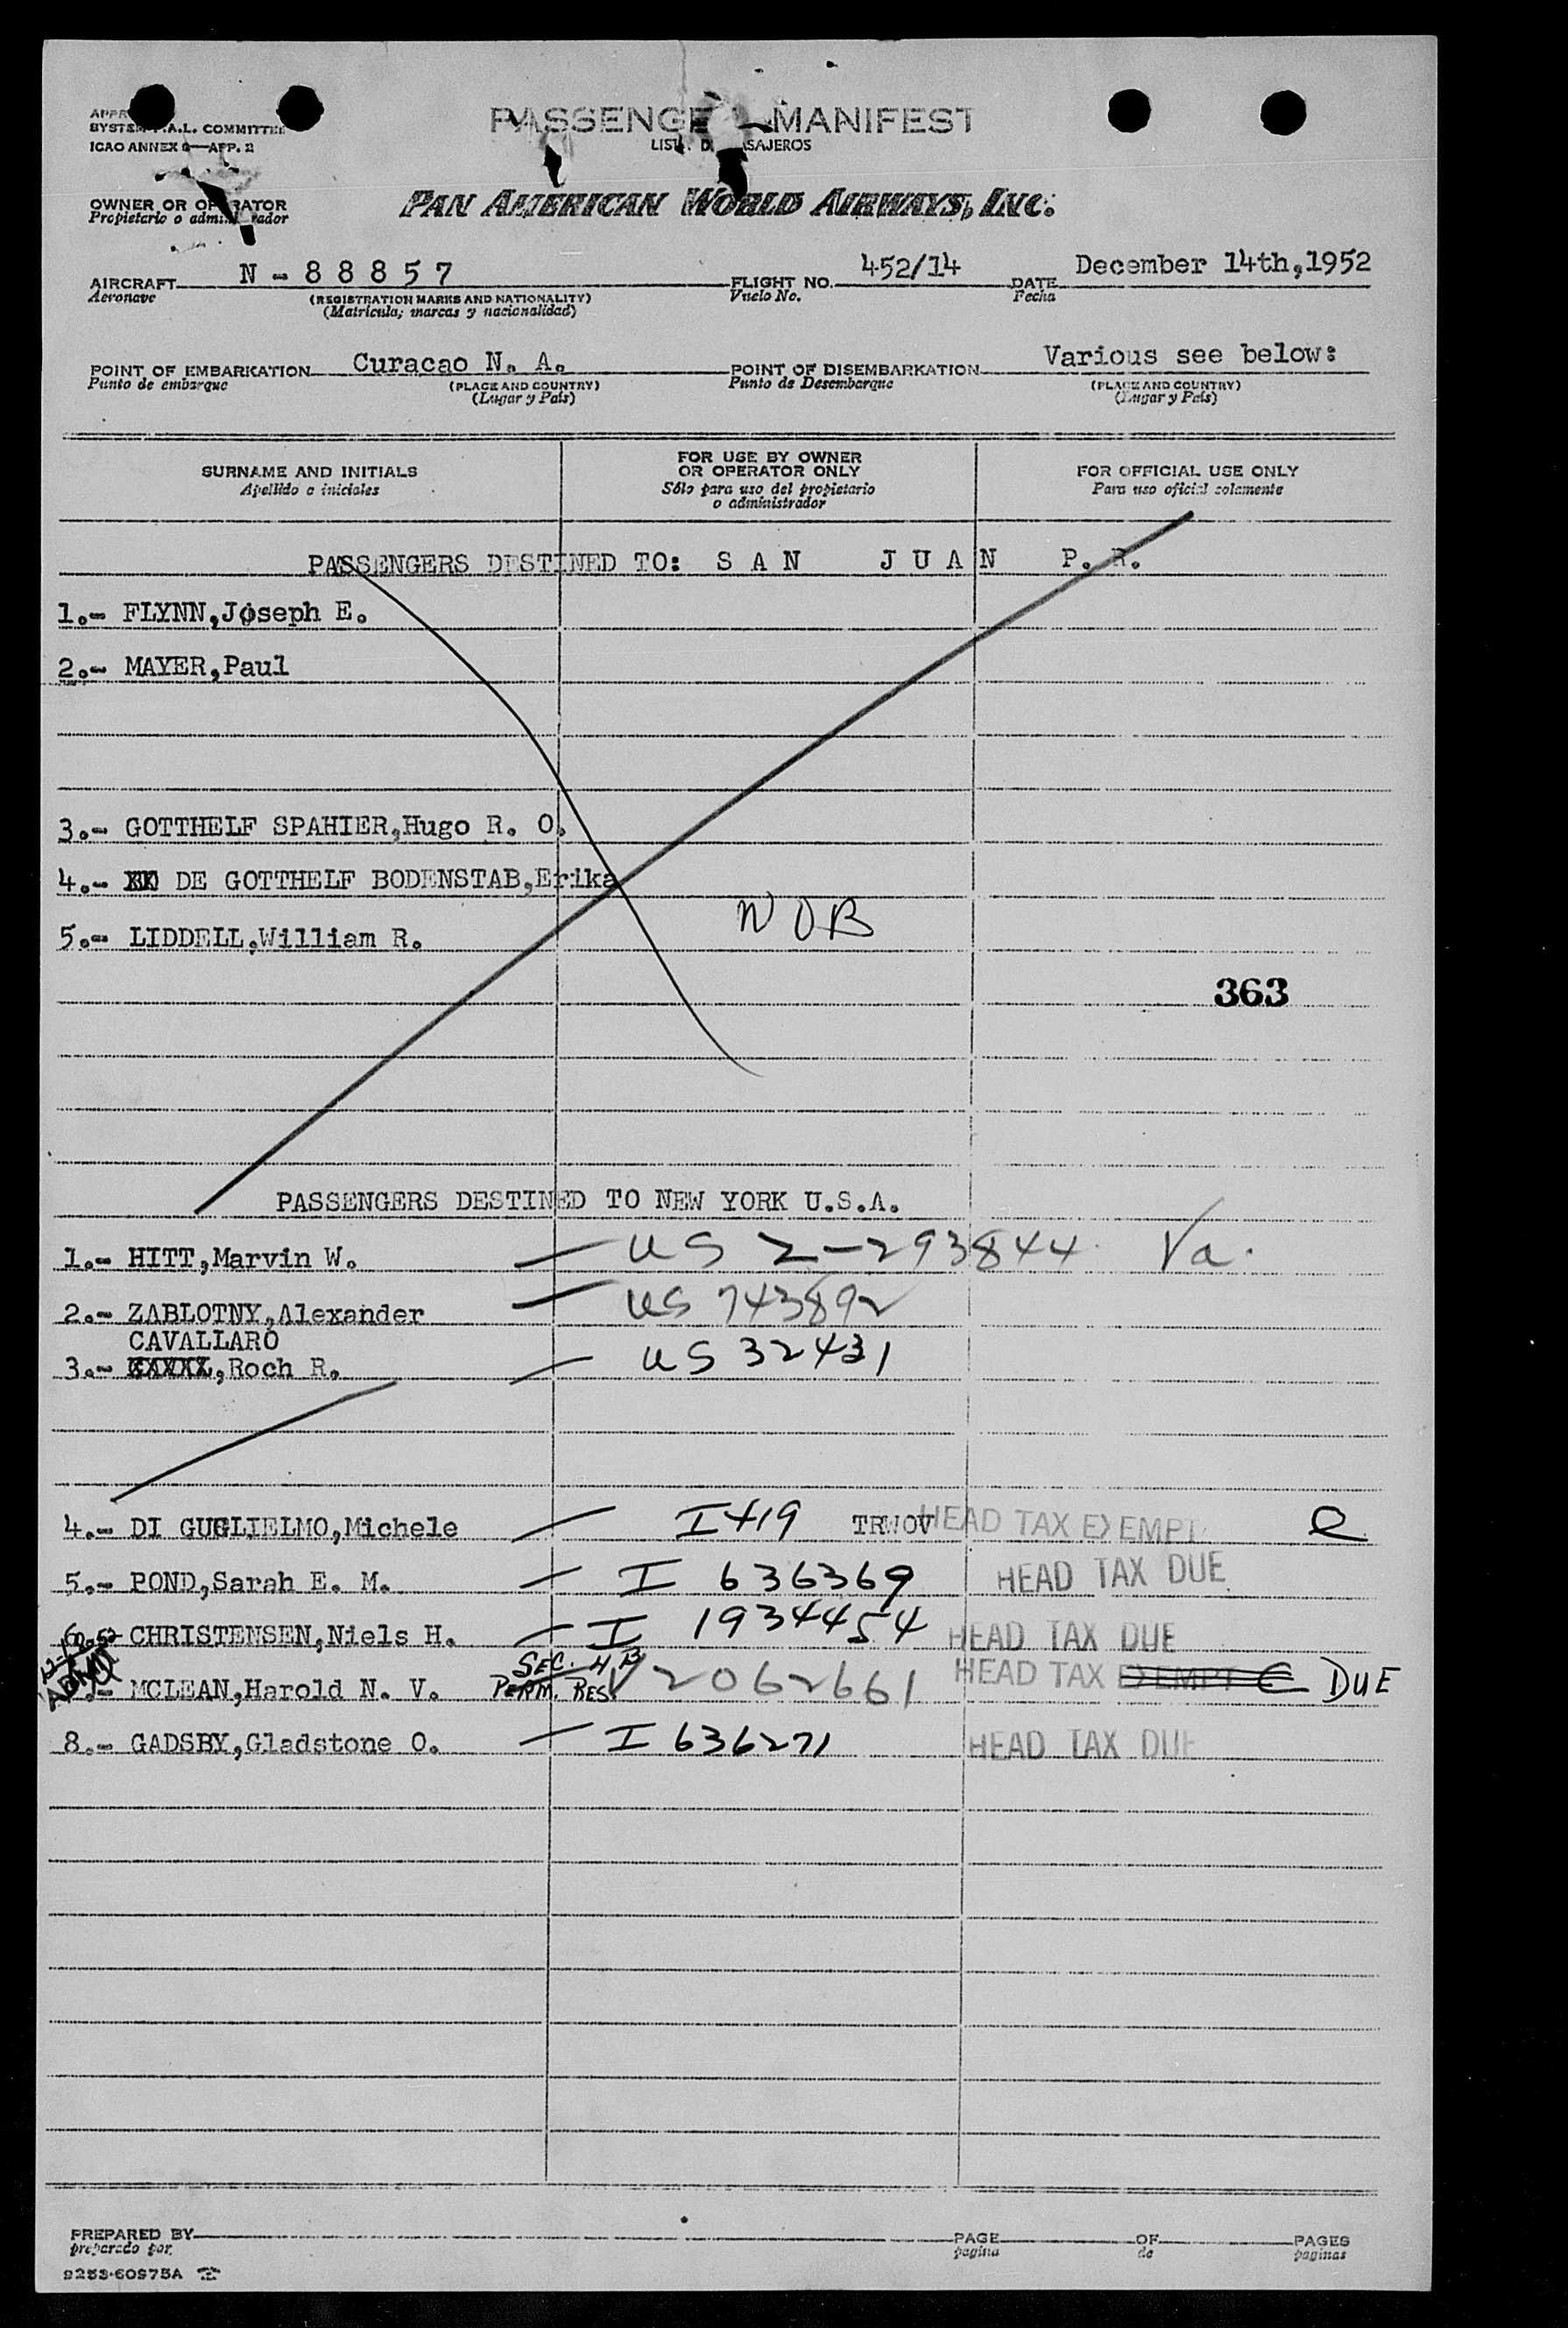 SYSTEM A.L. COMMITTEE
ICAO ANNEX 9—APP. 2
PASSENGE MANIFEST
LIST D SAJEROS
OWNER OR OPERATOR
Propietario o administrador
PAN AMERICAN WORLD AIRWAYS, INC.
AIRCRAFT N - 8 8 8 5 7 FLIGHT NO. 452/14 DATE December 14th,1952
Aeronave (REGISTRATION MARKS AND NATIONALITY) Vuelo No. Fecha
(Matricula; marcas y nacionalidad)
POINT OF EMBARKATION Curacao N. A. POINT OF DISEMBARKATION Various see below:
Punto de embarque (PLACE AND COUNTRY) Punto de Desembarque (PLACE AND COUNTRY)
(Lugar y País) (Lugar y País)
SURNAME AND INITIALS
Apellido e iniciales
FOR USE BY OWNER
OR OPERATOR ONLY
Sólo para uso del propietario
o administrador
FOR OFFICIAL USE ONLY
Para uso oficial solamente
PASSENGERS DESTINED TO: S A N J U A N P. R.
1.- FLYNN,Joseph E.
2.- MAYER,Paul
3.- GOTTHELF SPAHIER,Hugo R. O.
4.- DE GOTTHELF BODENSTAB,Erika
5.- LIDDELL,William R. NOB
363
PASSENGERS DESTINED TO NEW YORK U.S.A.
1.- HITT,Marvin W. — US 2-293844 Va.
2.- ZABLOTNY,Alexander — US 743892
CAVALLARO
3.- XXXXX,Roch R. — US 32431
4.- DI GUGLIELMO,Michele — I 419 TRWOV HEAD TAX EXEMPT
5.- POND,Sarah E. M. — I 636369 HEAD TAX DUE
6.- CHRISTENSEN,Niels H. — I 1934454 HEAD TAX DUE
SEC. 4 B
MCLEAN,Harold N. V. PERM. RES. V 2062661 HEAD TAX EXEMPT DUE
8.- GADSBY,Gladstone O. — I 636271 HEAD TAX DUE
PREPARED BY PAGE OF PAGES
preparado por pagina de paginas
9253-60975A